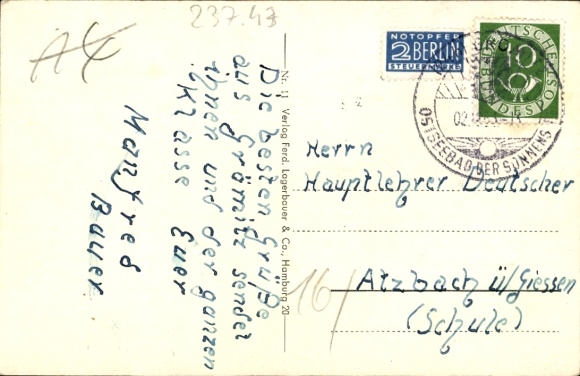 A4
237.43
Die besten Grüße
aus Grömitz sendet
Ihnen und der ganzen
Klasse Euer
Manfred
Bauer
Nr. 11 Verlag Ferd. Lagerbauer & Co., Hamburg 20
NOTOPFER
2 BERLIN
STEUERMARKE
DEUTSCHE
BUNDESPOST
10
OSTSEEBAD DER SONNENS
Herrn
Hauptlehrer Deutscher
16/
Atzbach ü/Giessen
(Schule)